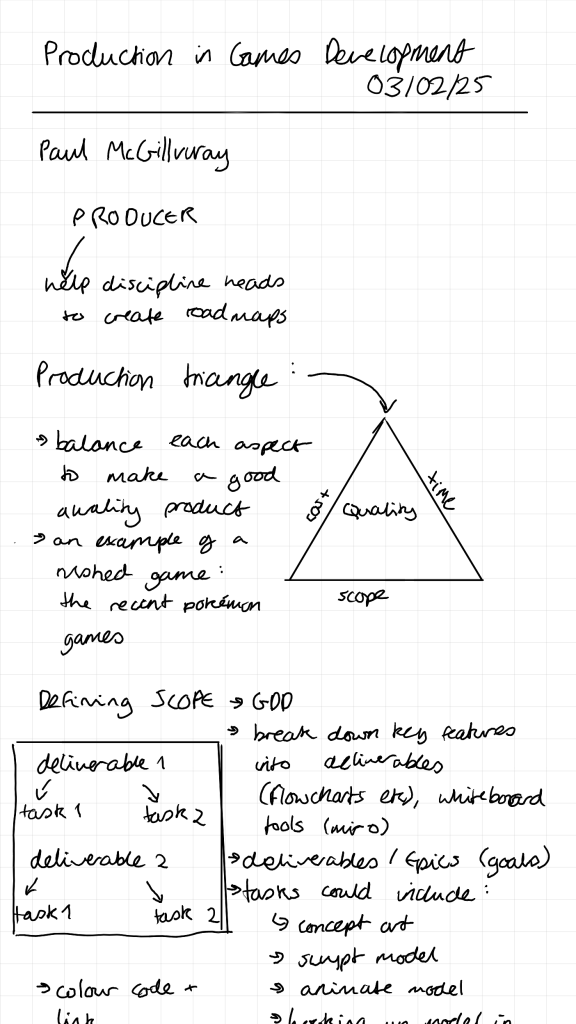 Production in Games Development
03/02/25
Paul McGillvray
PRODUCER
help discipline heads
to create roadmaps
Production triangle:
→ balance each aspect
to make a good
quality product
→ an example of a
rushed game:
the recent pokémon
games
cost
Quality
time
scope
Defining SCOPE → GDD
→ break down key features
into deliverables
(flowcharts etc), whiteboard
tools (miro)
→ deliverables / Epics (goals)
→ tasks could include:
↳ concept art
→ sculpt model
→ animate model
deliverable 1
task 1
task 2
deliverable 2
task 1
task 2
→ colour code +
link